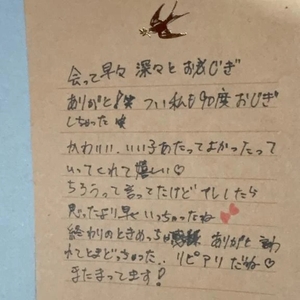 会って早々 深々と お辞じぎ
ありがと！笑 つい私も90度おじぎ
しちゃった 笑
かわいい、いい子あたってよかったって
いってくれて嬉しい♡
ちろうって言ってたけど してしたら
思ったより早くいっちゃったね
終わりのときめっちゃ ありがと 言わ
れてとまどっちゃった、リピアリだね♡
またまってます！